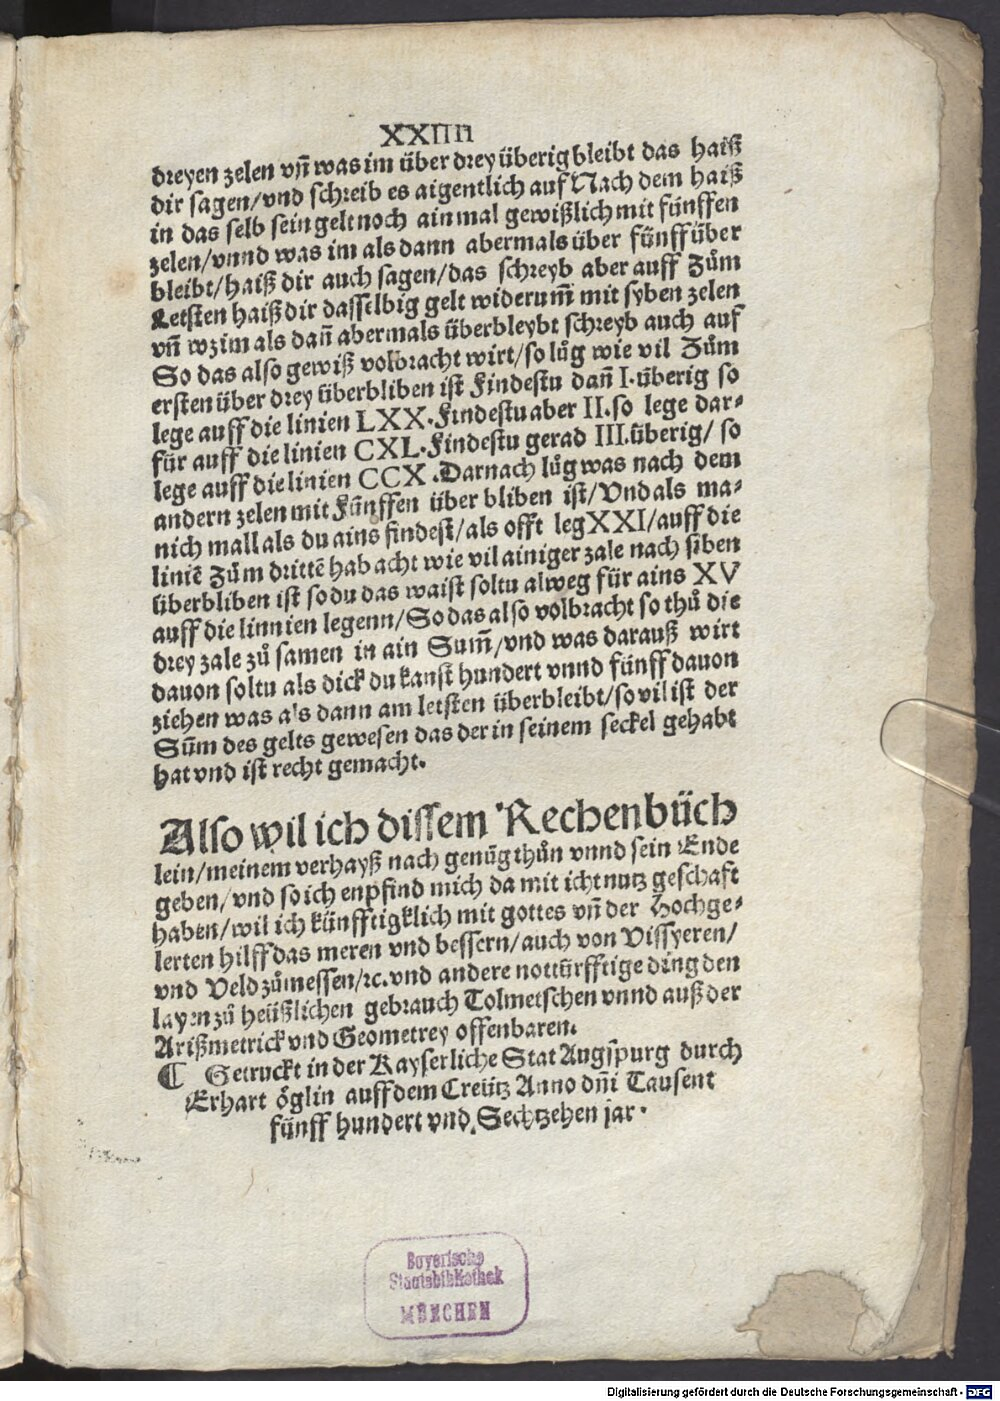 XXIIII
dreyen zelen vñ was im über drey überig bleibt das haiß
dir sagen/vnd schreib es aigentlich auf Nach dem haiß
in das selb sein gelt noch ain mal gewißlich mit fünffen
zelen/vnnd was im als dann abermals über fünff über
bleibt/haiß dir auch sagen/das schreyb aber auff Zům
Letsten haiß dir dasselbig gelt widerum̃ mit syben zelen
vñ wz im als dañ abermals überbleybt schreyb auch auf
So das also gewiß volbracht wirt/so lůg wie vil Zům
ersten über drey überbliben ist Findestu dañ I. überig so
lege auff die linien LXX. Findestu aber II. so lege dar⸗
für auff die linien CXL. Findestu gerad III. überig/ so
lege auff die linien CCX. Darnach lůg was nach dem
andern zelen mit Fünffen über bliben ist/Vnd als ma⸗
nich mall als du ains findest/als offt leg XXI/auff die
liniẽ Zům drittẽ hab acht wie vil ainiger zale nach siben
überbliben ist so du das waist soltu alweg für ains XV
auff die linnien legenn/So das also volbracht so thů die
drey zale zů samen in ain Sum̃/vnd was darauß wirt
dauon soltu als dick du kanst hundert vnnd fünff dauon
ziehen was als dann am letsten überbleibt/so vil ist der
Sūm des gelts gewesen das der in seinem seckel gehabt
hat vnd ist recht gemacht.
Also wil ich dissem Rechenbüch
lein/meinem verhayß nach genůg thůn vnnd sein Ende
geben/vnd so ich enpfind mich da mit icht nutz geschaft
haben/wil ich künfftigklich mit gottes vñ der Hochge⸗
lerten hilff das meren vnd bessern/auch von Vissyeren/
vnd Veld zůmessen/ꝛc. vnd andere nottürfftige ding den
layen zů heüßlichen gebrauch Tolmetschen vnnd auß der
Arißmetrick vnd Geometrey offenbaren.
¶ Getruckt in der Kayserliche Stat Augspurg durch
Erhart öglin auff dem Creütz Anno dñi Tausent
fünff hundert vnd Sechtzehen jar.
Bayerische
Staatsbibliothek
MÜNCHEN
Digitalisierung gefördert durch die Deutsche Forschungsgemeinschaft - DFG